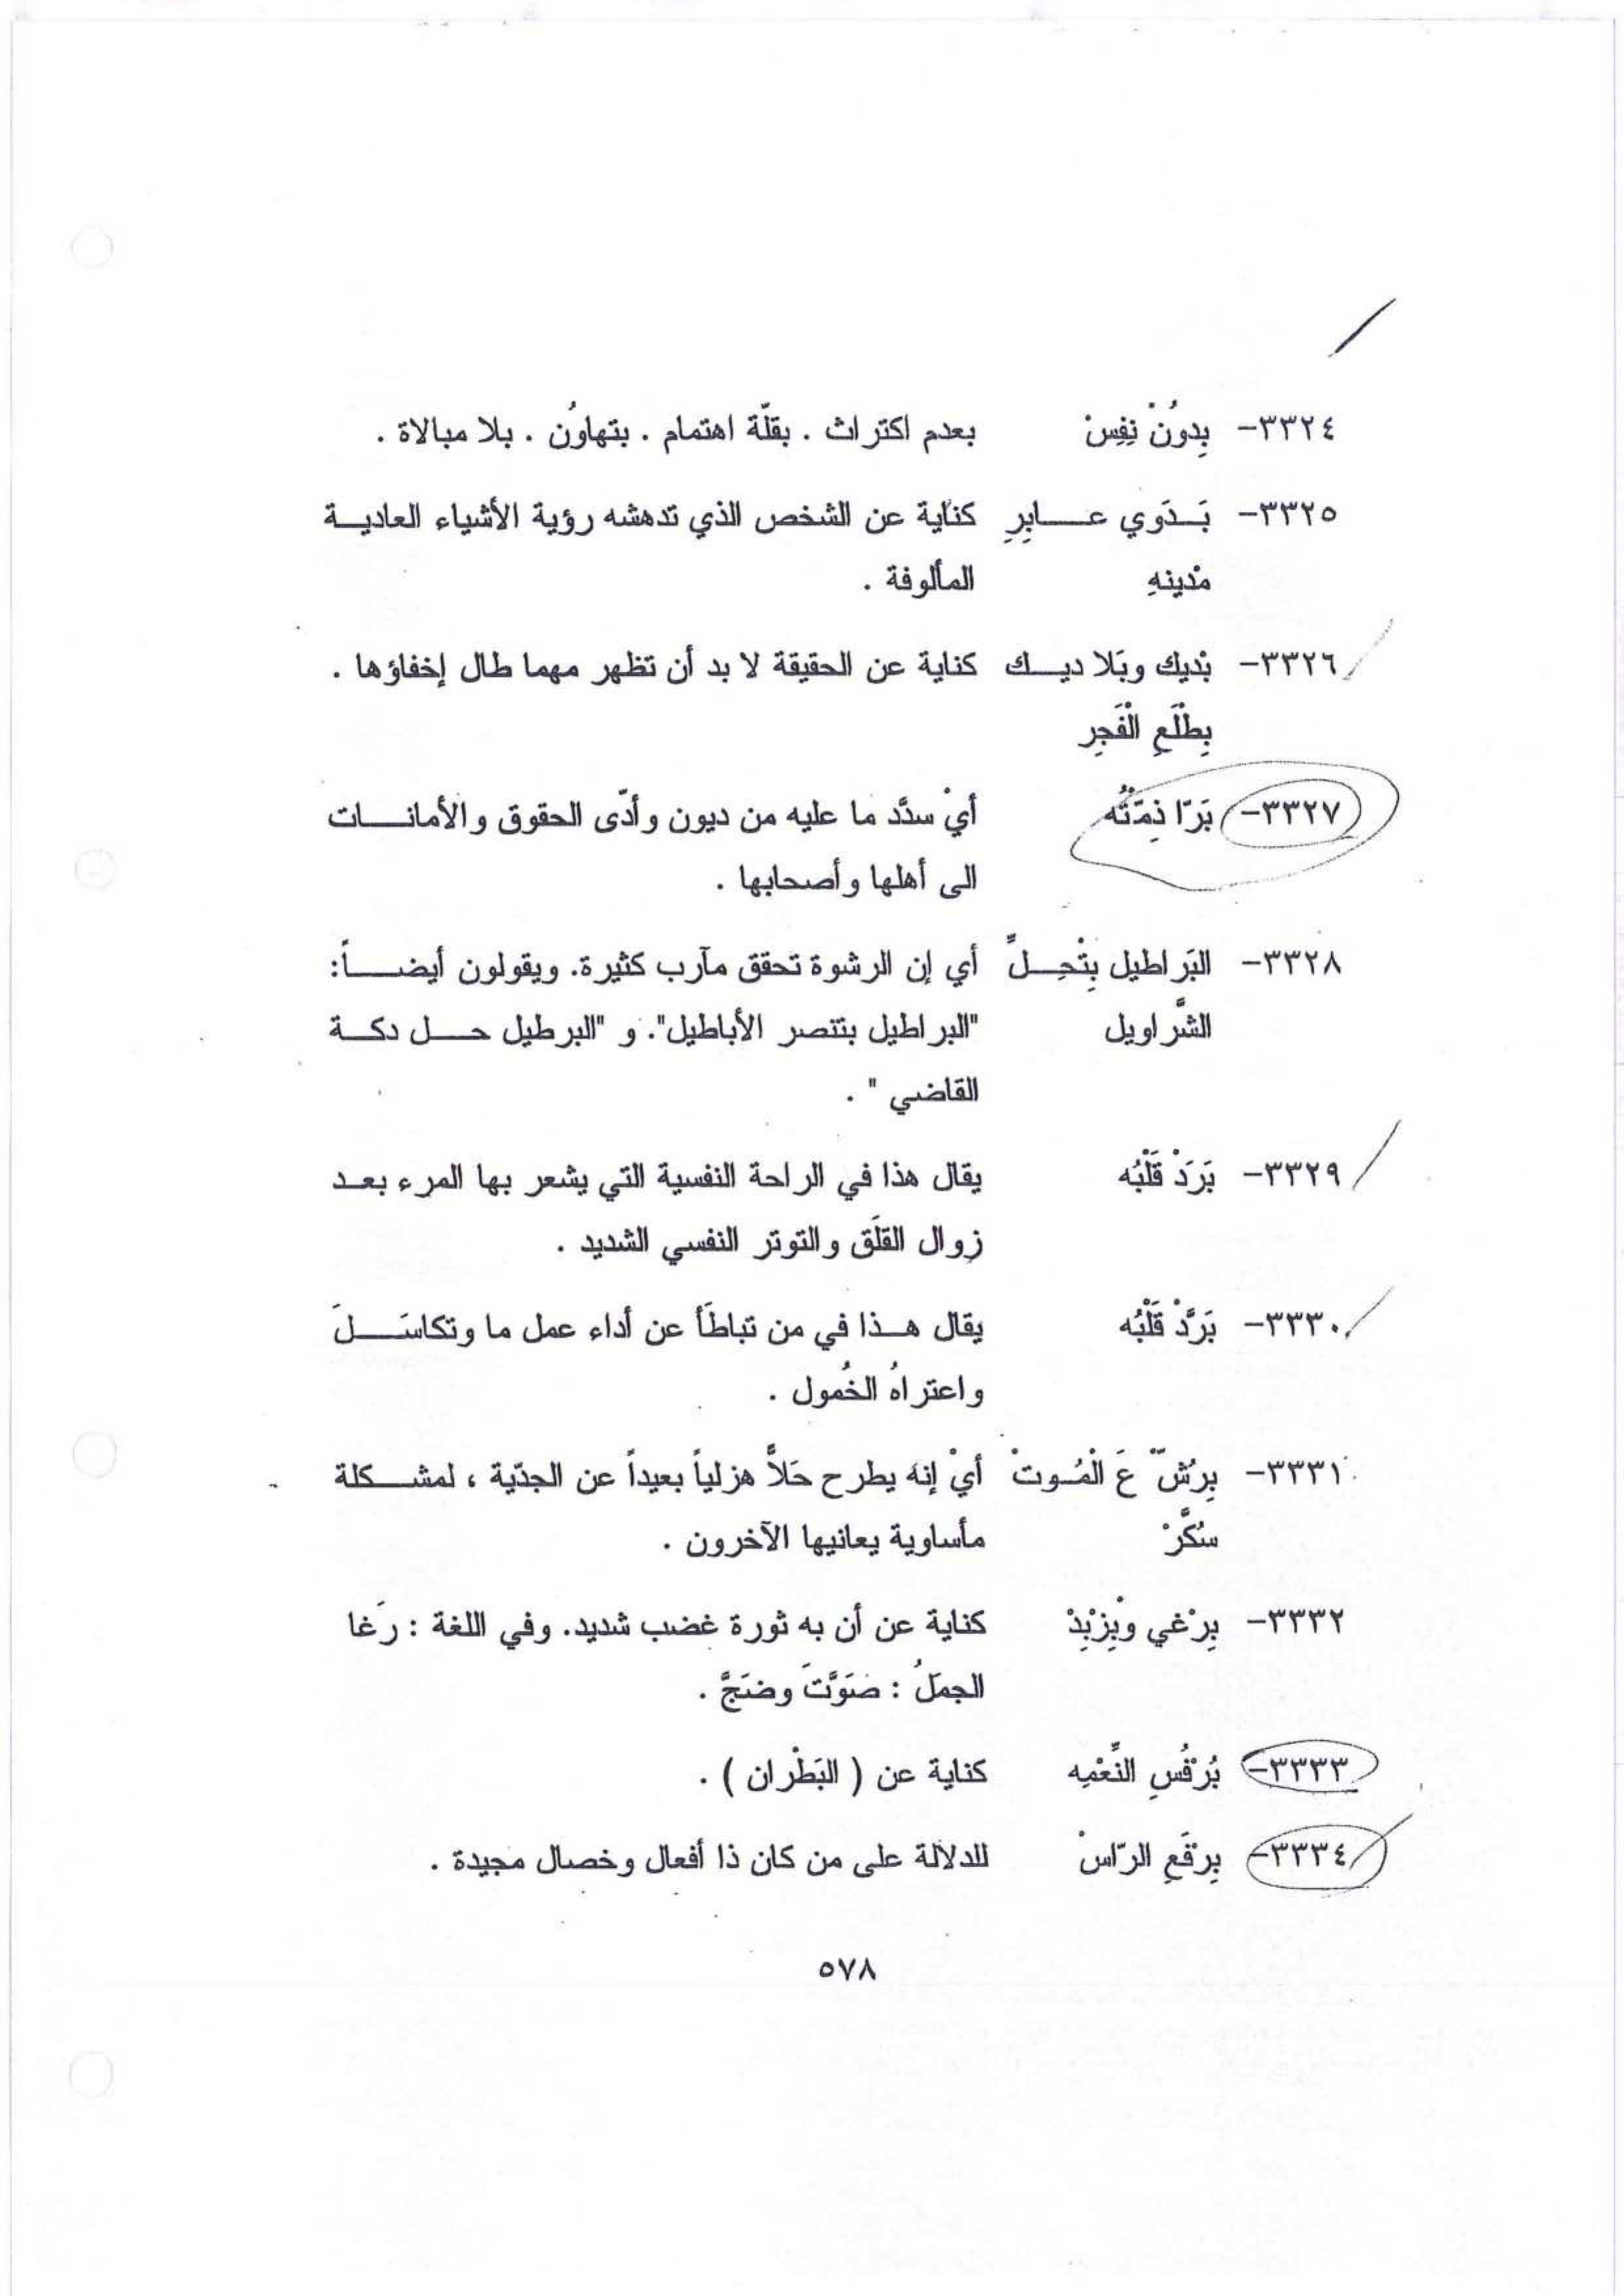 ٣٣٢٤- بِدونْ نِفِسْ بعدم اكتراث . بقلّة اهتمام . بتهاوُن . بلا مبالاة .
٣٣٢٥- بَـدَوي عـــابِرِ كناية عن الشخص الذي تدهشه رؤية الأشياء العاديـة
مْدينِه المألوفة .
٣٣٢٦- بْديك وبَلا ديـــك كناية عن الحقيقة لا بد أن تظهر مهما طال إخفاؤها .
بِطْلَعِ الْفَجِر
٣٣٢٧- بَرّا ذِمّتُه أيْ سدَّد ما عليه من ديون وأدّى الحقوق والأمانــات
الى أهلها وأصحابها .
٣٣٢٨- البَراطيل بِتْحِــلِّ أي إن الرشوة تحقق مآرب كثيرة. ويقولون أيضـــاً:
الشَّراويل "البراطيل بتنصر الأباطيل". و "البرطيل حــل دكــة
القاضي " .
٣٣٢٩- بَرَدْ قَلْبُه يقال هذا في الراحة النفسية التي يشعر بها المرء بعـد
زوال القلَق والتوتر النفسي الشديد .
٣٣٣٠- بَرَّدْ قَلْبُه يقال هـذا في من تباطَأ عن أداء عمل ما وتكاسَـــلَ
واعتراهُ الخُمول .
٣٣٣١- بِرُشّ عَ الْمُـوتْ أيْ إنه يطرح حَلاًّ هزلياً بعيداً عن الجدّية ، لمشــكلة
سُكَّرْ مأساوية يعانيها الآخرون .
٣٣٣٢- بِرْغي وبْزِبْدْ كناية عن أن به ثورة غضب شديد. وفي اللغة : رَغا
الجمَلُ : صَوَّتَ وضَجَّ .
٣٣٣٣- بُرْفُسِ النِّعْمِه كناية عن ( البَطْران ) .
٣٣٣٤- بِرفَعِ الرّاسْ للدلالة على من كان ذا أفعال وخصال مجيدة .
٥٧٨